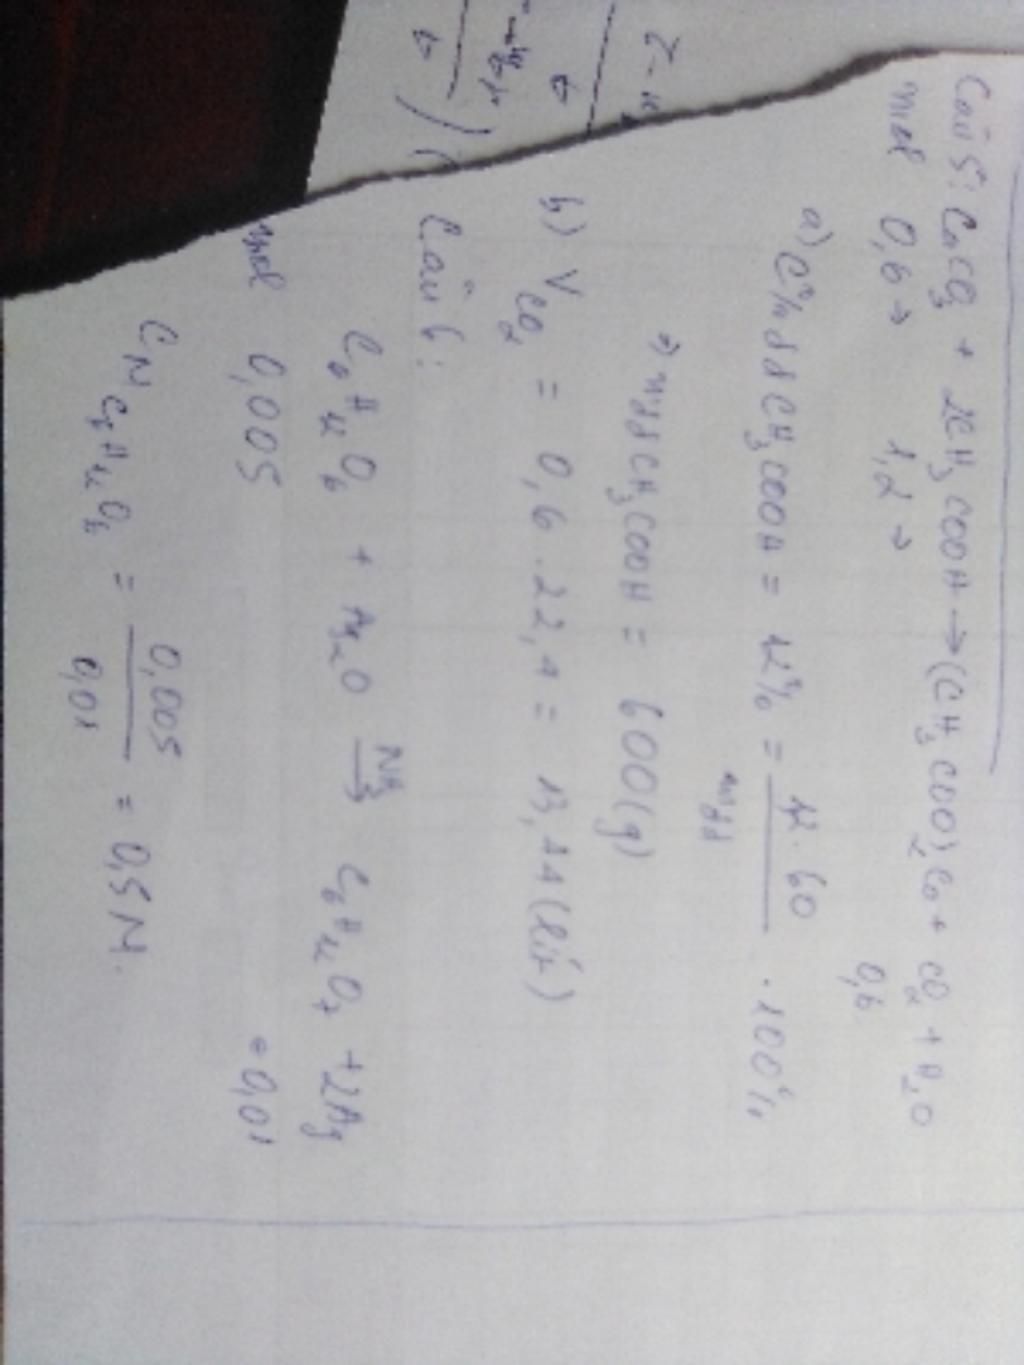 Câu 5: CaCO3 + 2CH3COOH → (CH3COO)2Ca + CO2 + H2O
mol 0,6 → 1,2 → 0,6
a) C% dd CH3COOH = 12% = 1,2 . 60 / mdd . 100%
⇒ mdd CH3COOH = 600(g)
b) V CO2 = 0,6 . 22,4 = 13,44 (lít)
Câu 6:
C6H12O6 + Ag2O NH3→ C6H12O7 + 2Ag
mol 0,005 ← 0,01
CM C6H12O6 = 0,005 / 0,01 = 0,5 M.